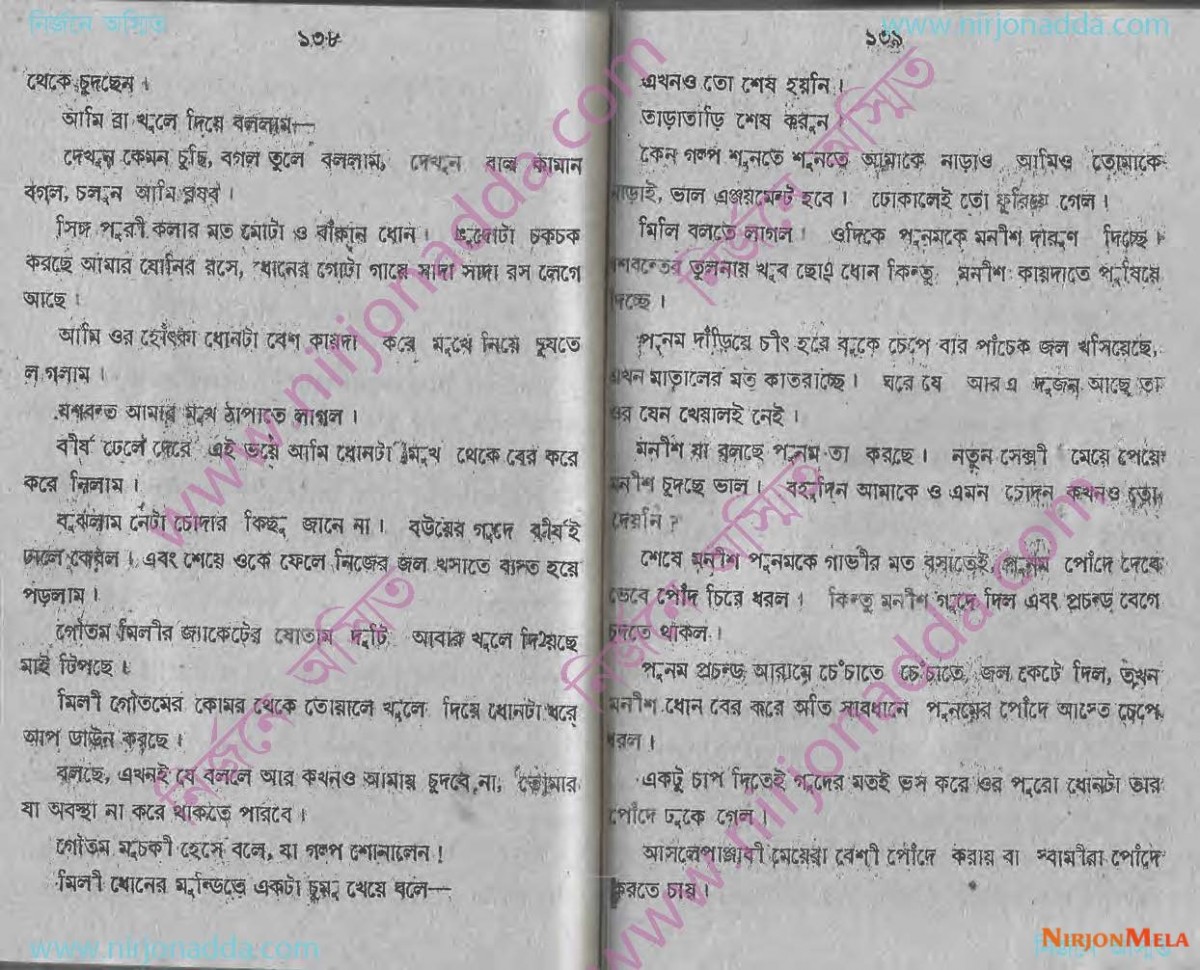 নির্জনে অস্মিত
www.nirjonadda.com
১৩৮
থেকে চুদছেন।
আমি ব্রা খুলে দিয়ে বললাম—
দেখুন কেমন চুচি, বগল তুলে বললাম, দেখুন বাল কামান
বগল, চলুন আমি চুষব।
সিঙ্গাপুরী কলার মত মোটা ও বাঁকান ধোন। মুন্ডোটা চকচক
করছে আমার যোনির রসে, ধোনের গোটা গায়ে সাদা সাদা রস লেগে
আছে।
আমি ওর হোঁৎকা ধোনটা বেশ কায়দা করে মুখে নিয়ে চুষতে
লাগলাম।
যশবন্ত আমার মুখে ঠাপাতে লাগল।
বীর্য ঢেলে দেবে এই ভয়ে আমি ধোনটা মুখ থেকে বের করে
করে নিলাম।
বুঝলাম চোদার কিছু জানে না। বউয়ের গুদে বীর্যই
ঢেলে কেবল। এবং শেষে ওকে ফেলে নিজের জল খসাতে ব্যস্ত হয়ে
পড়লাম।
গৌতম মিলীর জ্যাকেটের বোতাম দুটি আবার খুলে দিয়েছে
মাই টিপছে।
মিলী গৌতমের কোমর থেকে তোয়ালে খুলে দিয়ে ধোনটা ধরে
আপ ডাউন করছে।
বলছে, এখনই যে বললে আর কখনও আমায় চুদবে না, তোমার
যা অবস্থা না করে থাকতে পারবে।
গৌতম মুচকী হেসে বলে, যা গল্প শোনালেন!
মিলী ধোনের মুন্ডিতে একটা চুমু খেয়ে বলে—
www.nirjonadda.com
১৩৯
এখনও তো শেষ হয়নি।
তাড়াতাড়ি শেষ করুন।
কেন গল্প শুনতে শুনতে আমাকে নাড়াও আমিও তোমাকে
নাড়াই, ভাল এঞ্জয়মেন্ট হবে। ঢোকালেই তো ফুরিয়ে গেল।
মিলি বলতে লাগল। ওদিকে পুনমকে মনীশ দারুণ দিচ্ছে।
যশবন্তের তুলনায় খুব ছোট ধোন কিন্তু মনীশ কায়দাতে পুষিয়ে
দিচ্ছে।
পুনম দাঁড়িয়ে চীৎ হয়ে বুকে চেপে বার পাঁচেক জল খসিয়েছে,
এখন মাতালের মত কাতরাচ্ছে। ঘরে যে আর এ দুজন আছে তা
ওর যেন খেয়ালই নেই।
মনীশ যা বলছে পুনম তা করছে। নতুন সেক্সী মেয়ে পেয়ে
মনীশ চুদছে ভাল। বহুদিন আমাকে ও এমন চোদন কখনও
দেয়নি?
শেষে মনীশ পুনমকে গাভীর মত বসাতেই, পুনম পোঁদে দেবে
ভেবে পোঁদ চিরে ধরল। কিন্তু মনীশ গুদে দিল এবং প্রচন্ড বেগে
চুদতে থাকল।
পুনম প্রচন্ড আরামে চেঁচাতে চেঁচাতে জল কেটে দিল, তখন
মনীশ ধোন বের করে অতি সাবধানে পুনমের পোঁদে আস্তে চেপে
ধরল।
একটু চাপ দিতেই গুদের মতই ভস করে ওর পুরো ধোনটা তার
পোঁদে ঢুকে গেল।
আসলে পাঞ্জাবী মেয়েরা বেশী পোঁদে করায় বা স্বামীরা পোঁদে
করতে চায়।
NIRJONMELA